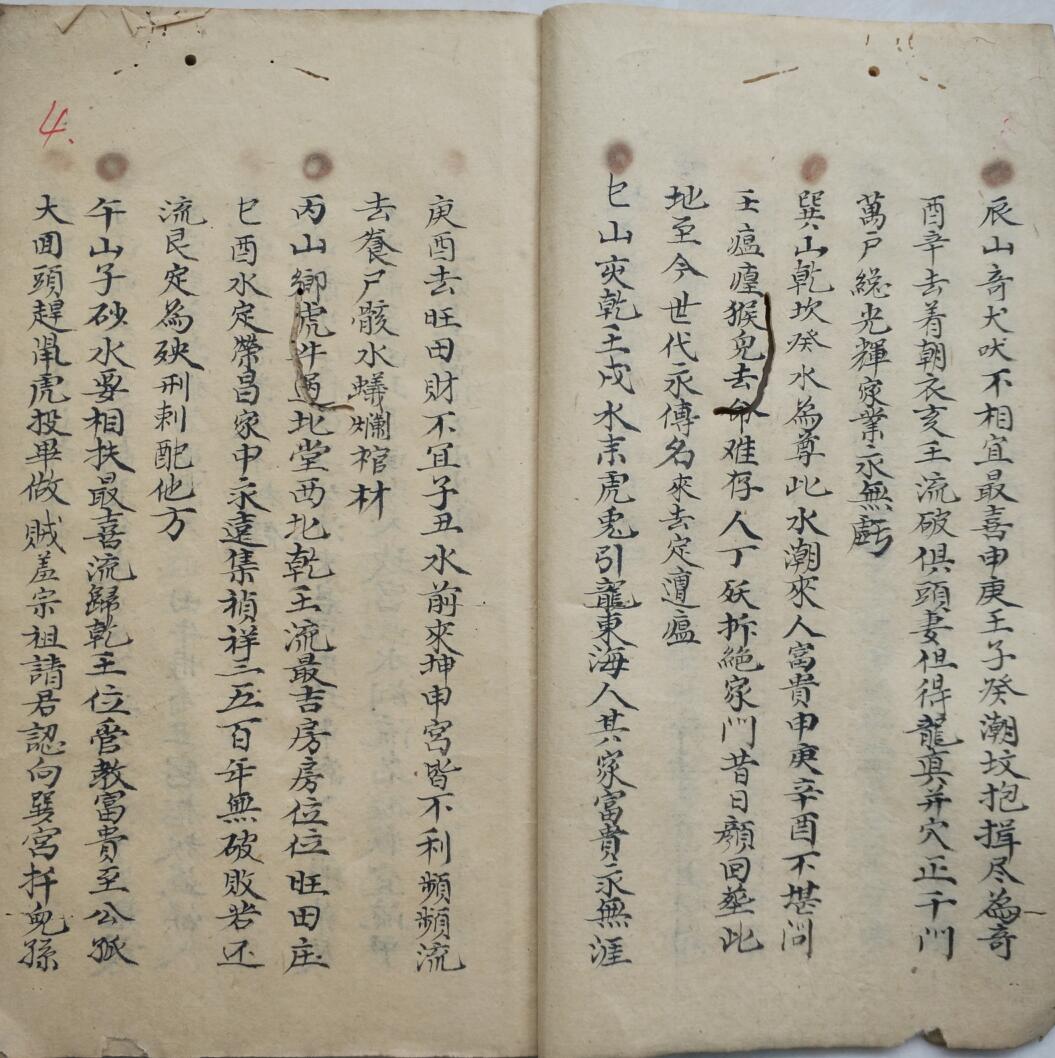 辰山竒犬吠不相宜最喜申庚壬子癸潮坟抱揖尽為竒
酉辛去着朝衣亥壬流破俱頭妻但得龍真并穴正千門
萬户総光輝家業永無虧
巽山乾坎癸水為尊此水潮來人富貴申庚辛酉不堪问
壬瘟㾮猴兒去命难存人丁妖折絶家门昔日顔回塟此
地至今世代永傳名來去定遭瘟
巳山亥乾壬戌水束虎兎引龍東海人其家富貴永無涯
庚酉去旺田財不宜子丑水前來坤申宮皆不利頻頻流
去養尸骸水蟻爛棺材
丙山鄉虎牛遇北堂西北乾壬流最吉房房位位旺田庄
巳酉水定榮昌家中永遠集禎祥三五百年無破敗若还
流艮定為殃刑刺配他方
午山子砂水要相扶最喜流歸乾壬位管教富貴至公孤
大囬頭趕鼡虎投畢做賊羞宗祖請君認向巽宮扦兒孫
4.